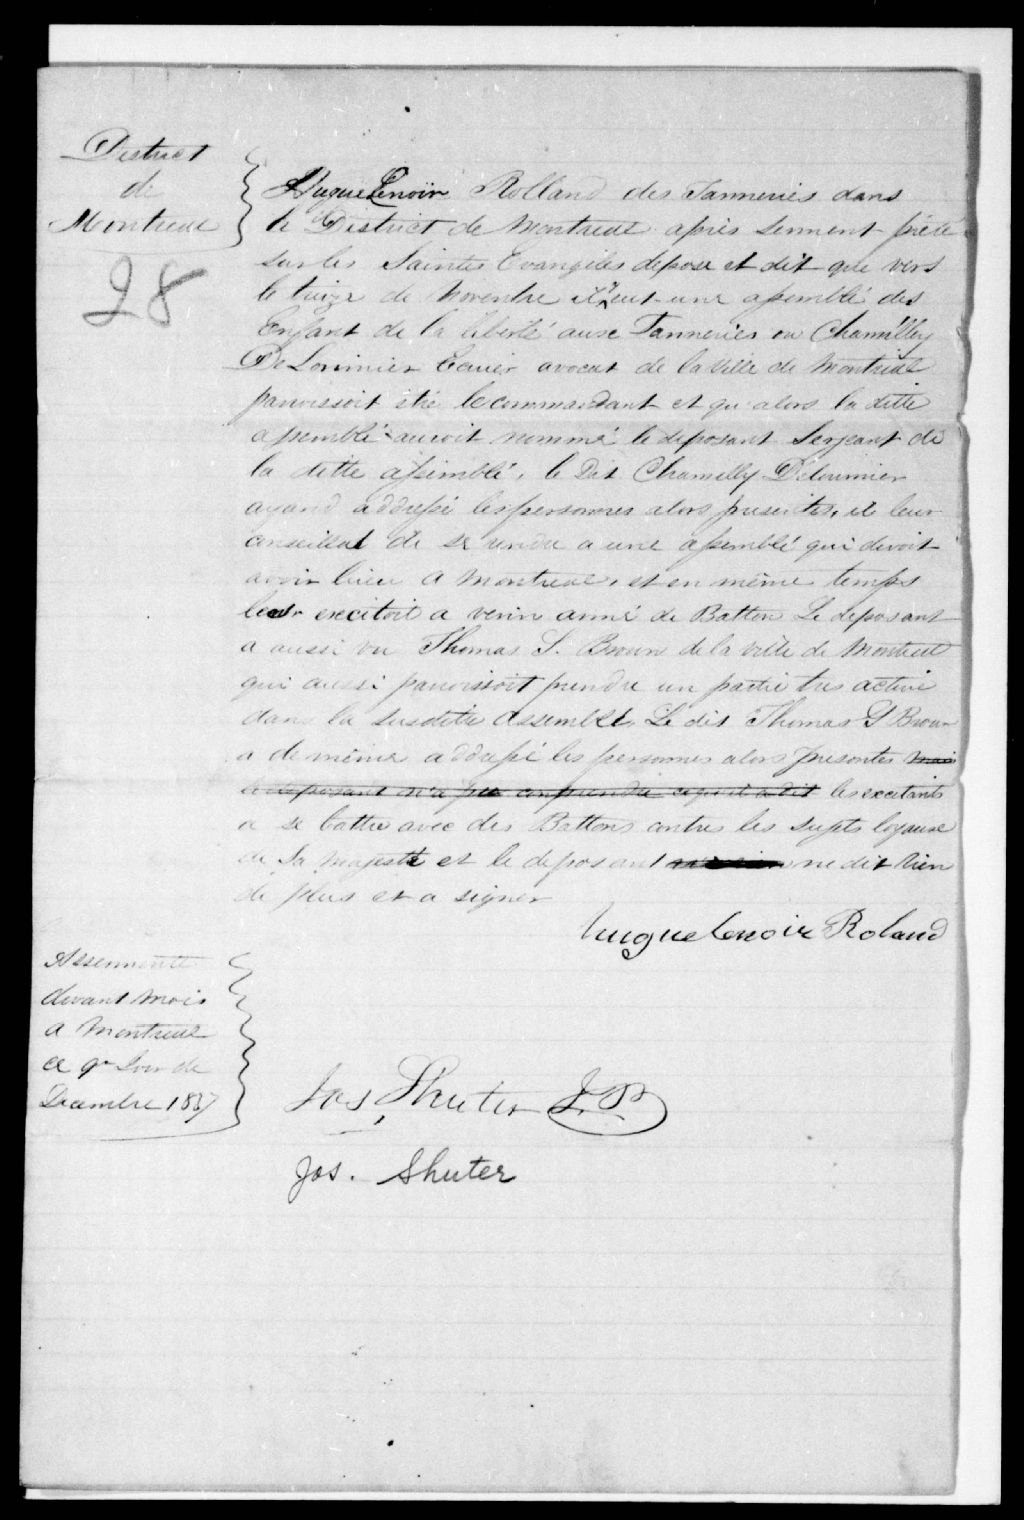 District
de
Montreal
28
Hugue Lenoir Rolland des Tanneries dans
le District de Montreal après serment prété
sur les Saintes Evangiles depose et dit que vers
le treize de Novembre il y eut une assemblé des
Enfant de la liberté aux Tanneries ou Chamilley
De Lorimier Ecuier avocat de la Ville de Montreal
paroissoit etre le commandant et qu'alors la ditte
assemblé auroit nommé le deposant Serjeant de
la ditte assemblé, le dit Chamilly Delorimier
ayand addressé les personnes alors presentes, et leur
conseillat de se rendre a une assemblé qui devoit
avoir lieu a Montreal, et en même temps
leur excitoit a venir armé de Batton Le deposant
a aussi vu Thomas S. Brown de la ville de Montreal
qui aussi paroissoit prendre un partie tres active
dans la susditte assemblé, Le dit Thomas S Brown
a de même addressé les personnes alors presentes mais
le deposant n'a pu comprendre ce qu'il a dit les excitants
a se battre avec des Battons contre les sujets loyaux
de Sa Majesté et le deposant ne dit rien
de plus et a signer
hugue lenoir Roland
Assermenté
devant mois
a Montreal
ce 9e Jour de
Decembre 1837
Jos, Shuter J.P.
Jos. Shuter